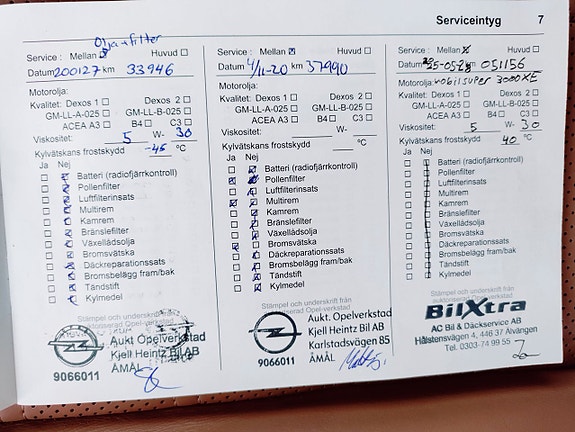 Serviceintyg 7
Olja + filter
Service : Mellan Huvud
Datum 200127 km 33946
Motorolja:
Kvalitet: Dexos 1 Dexos 2
GM-LL-A-025 GM-LL-B-025
ACEA A3 B4 C3
Viskositet: 5 W- 30
Kylvätskans frostskydd -45 °C
Ja Nej
Batteri (radiofjärrkontroll)
Pollenfilter
Luftfilterinsats
Multirem
Kamrem
Bränslefilter
Växellådsolja
Bromsvätska
Däckreparationssats
Bromsbelägg fram/bak
Tändstift
Kylmedel
Stämpel och underskrift från
auktoriserad Opel-verkstad
Aukt Opelverkstad
Kjell Heintz Bil AB
ÅMÅL
9066011
Service : Mellan Huvud
Datum 4/11-20 km 37990
Motorolja:
Kvalitet: Dexos 1 Dexos 2
GM-LL-A-025 GM-LL-B-025
ACEA A3 B4 C3
Viskositet: W-
Kylvätskans frostskydd °C
Ja Nej
Batteri (radiofjärrkontroll)
Pollenfilter
Luftfilterinsats
Multirem
Kamrem
Bränslefilter
Växellådsolja
Bromsvätska
Däckreparationssats
Bromsbelägg fram/bak
Tändstift
Kylmedel
Stämpel och underskrift från
auktoriserad Opel-verkstad
Aukt. Opelverkstad
Kjell Heintz Bil AB
Karlstadsvägen 85
ÅMÅL
9066011
Service : Mellan Huvud
Datum: km 051156
Motorolja: mobil super 3000 XE
Kvalitet: Dexos 1 Dexos 2
GM-LL-A-025 GM-LL-B-025
ACEA A3 B4 C3
Viskositet: 5 W- 30
Kylvätskans frostskydd 40 °C
Ja Nej
Batteri (radiofjärrkontroll)
Pollenfilter
Luftfilterinsats
Multirem
Kamrem
Bränslefilter
Växellådsolja
Bromsvätska
Däckreparationssats
Bromsbelägg fram/bak
Tändstift
Kylmedel
Stämpel och underskrift från
auktoriserad Opel-verkstad
BilXtra
AC Bil & Däckservice AB
Hålstensvägen 4, 446 37 Älvängen
Tel. 0303-74 99 55